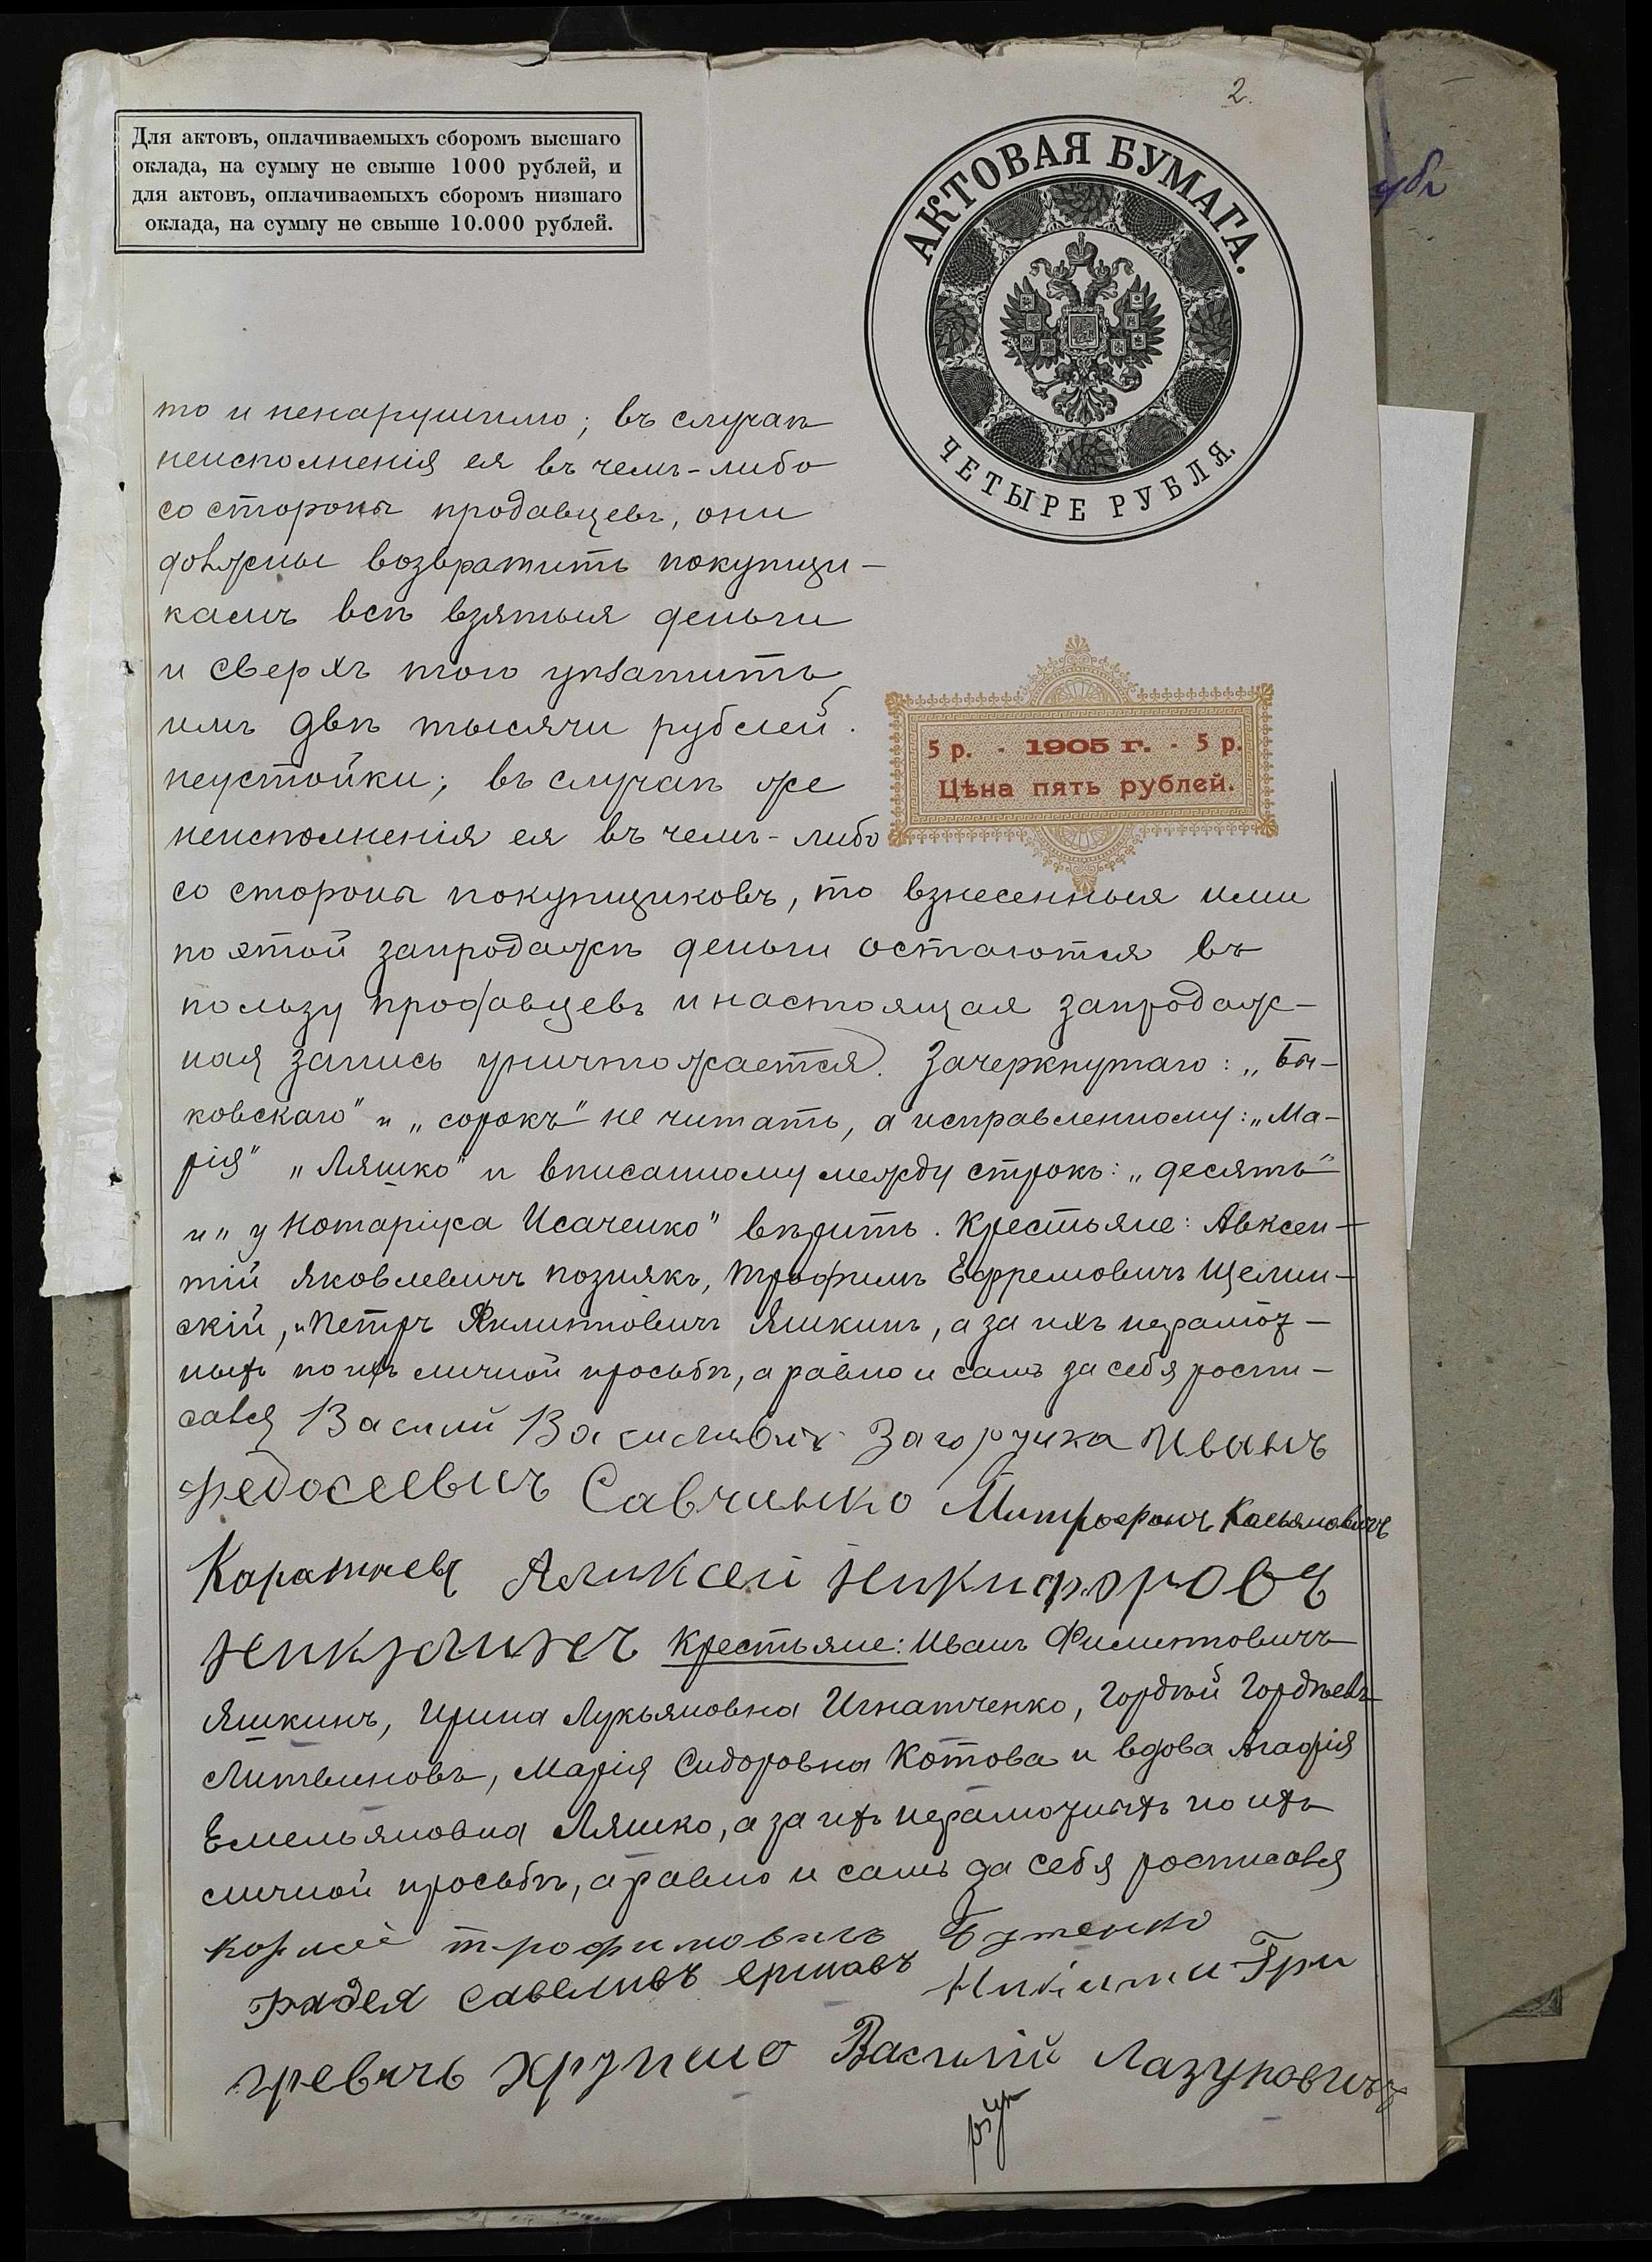 2.
Для актовъ, оплачиваемыхъ сборомъ высшаго
оклада, на сумму не свыше 1000 рублей, и
для актовъ, оплачиваемыхъ сборомъ низшаго
оклада, на сумму не свыше 10.000 рублей.
АКТОВАЯ БУМАГА.
ЧЕТЫРЕ РУБЛЯ.
то и ненарушимо; въ случаѣ
неисполненія ея въ чемъ-либо
со стороны продавцевъ, они
должны возвратить покупщи-
камъ всѣ взятыя деньги
и сверхъ того уплатить
имъ двѣ тысячи рублей
неустойки; въ случаѣ же
неисполненія ея въ чемъ-либо
5 р. - 1905 г. - 5 р.
Цѣна пять рублей.
со стороны покупщиковъ, то взнесенныя ими
по этой запродажѣ деньги остаются въ
пользу продавцевъ и настоящая запродаж-
ная запись уничтожается. Зачеркнутаго: „Бы-
ковскаго" и „сорокъ" не читать, а исправленному: „Ма-
рія" „Ляшко" и вписанному между строкъ: „десять"
и „у Нотаріуса Исаченко" вѣрить. Крестьяне: Авксен-
тій Яковлевичъ Познякъ, Трофимъ Ефремовичъ Щелин-
скій, и Петръ Филиповичъ Яшкинъ, а за ихъ неграмот-
ныхъ по ихъ личной просьбѣ, а равно и самъ за себя роспи-
сался Василий Загоруика Иванъ
Федосеевичъ Савчинко Митрофанъ Касьяновичъ
Аликсей Никифоровъ
Крестьяне: Иванъ Филиповичъ
Яшкинъ, Ирина Лукьяновна Игнатченко, Гордѣй Гордѣевъ
Литвиновъ, Марія Сидоровна Котова и вдова Агафія
Емельяновна Ляшко, а за ихъ неграмотныхъ по ихъ
личной просьбѣ, а равно и самъ за себя росписался
трофимовичъ Бутенко
Фадея савеливъ ершовъ Никити Гри
Василій Лазуковичъ